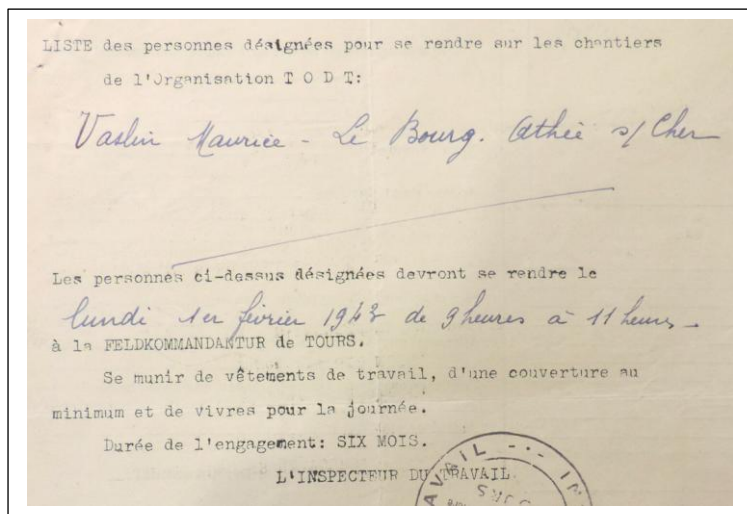 LISTE des personnes désignées pour se rendre sur les chantiers
de l'Organisation T O D T:
Vaslin Maurice - Le Bourg. Athée s/ Cher
Les personnes ci-dessus désignées devront se rendre le
lundi 1er février 1943 de 9 heures à 11 heures -
à la FELDKOMMANDANTUR de TOURS.
Se munir de vêtements de travail, d'une couverture au
minimum et de vivres pour la journée.
Durée de l'engagement: SIX MOIS.
L'INSPECTEUR DU TRAVAIL